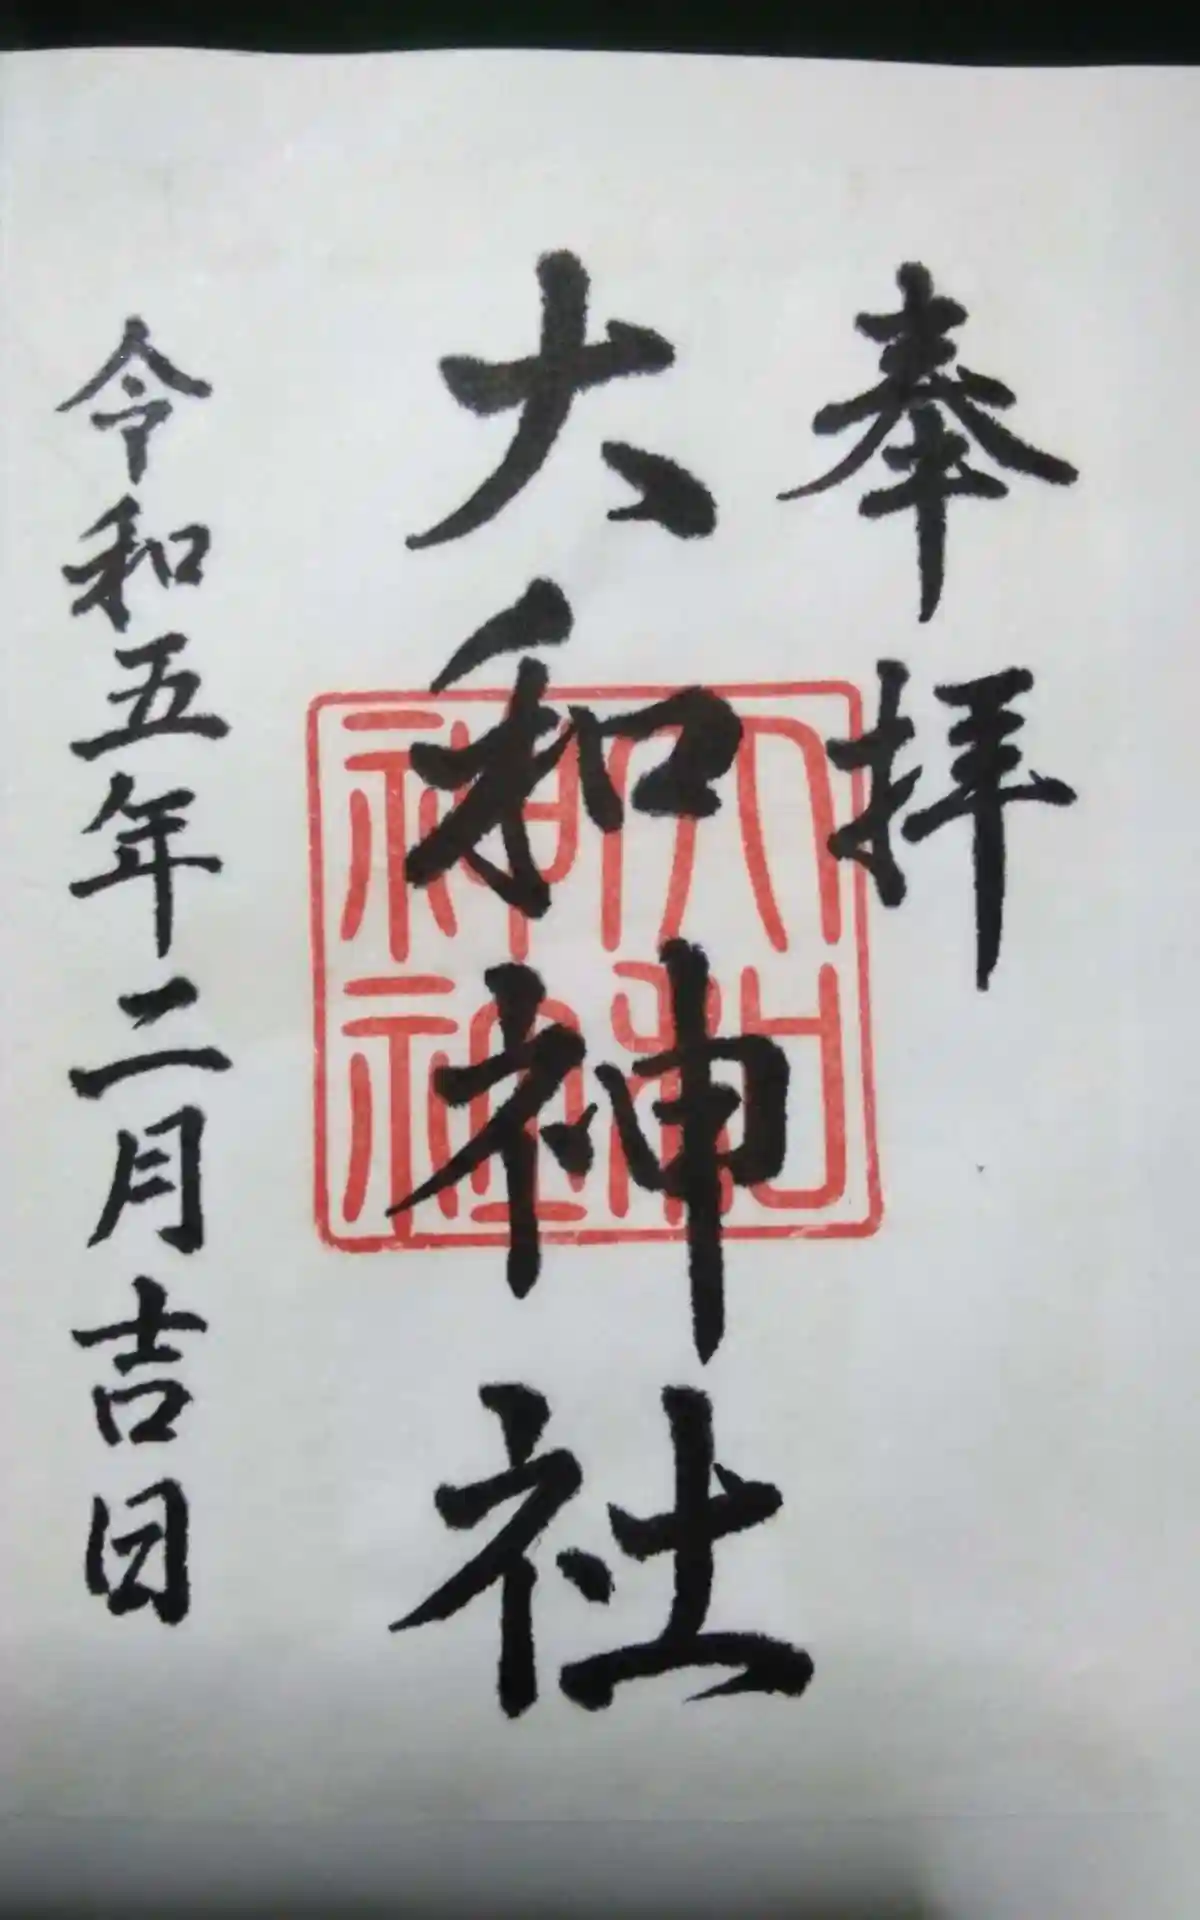 奉拝
大和神社
大和神社
令和五年二月吉日